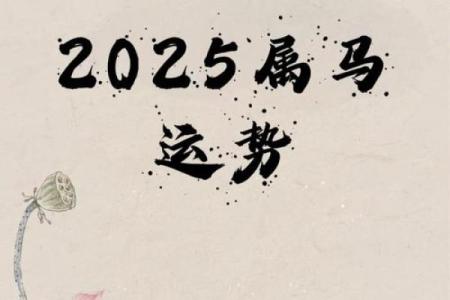 2025属马
运势